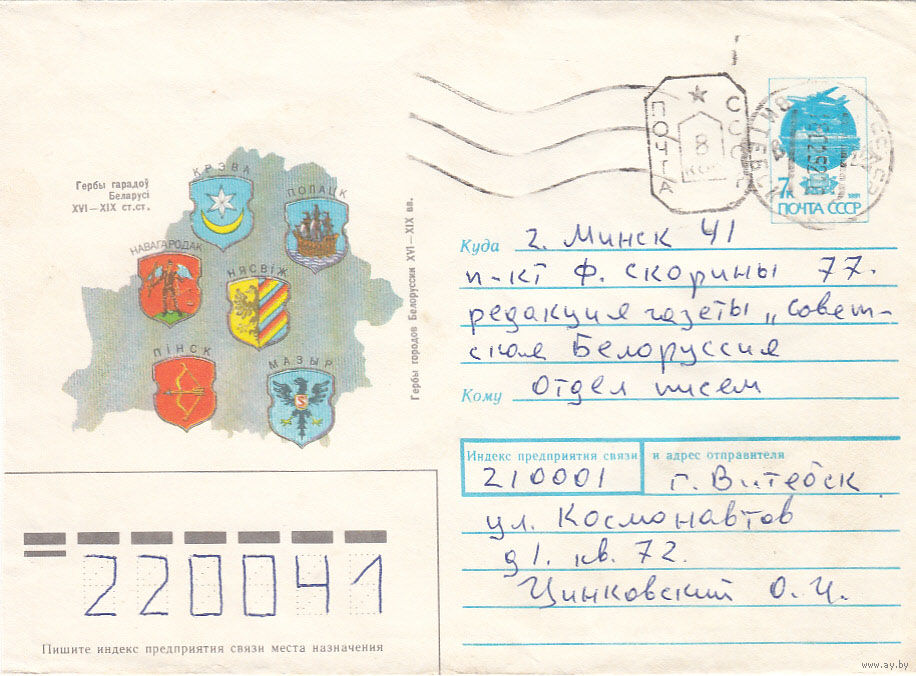 Гербы гарадоў
Беларусі
XVI–XIX ст.ст.
КРЭВА
ПОЛАЦК
НАВАГАРОДАК
НЯСВІЖ
ПІНСК
МАЗЫР
Гербы городов Белоруссии XVI–XIX вв.
ПОЧТА
СССР
8
КОП
7к
1991
ПОЧТА СССР
ВИТЕБСК
Куда г. Минск 41
п-кт Ф. Скорины 77.
редакция газеты „Совет-
ская Белоруссия
Кому Отдел писем
Индекс предприятия связи и адрес отправителя
210001 г. Витебск
ул. Космонавтов
д1. кв. 72.
Цинковский О.И.
220041
Пишите индекс предприятия связи места назначения
www.ay.by